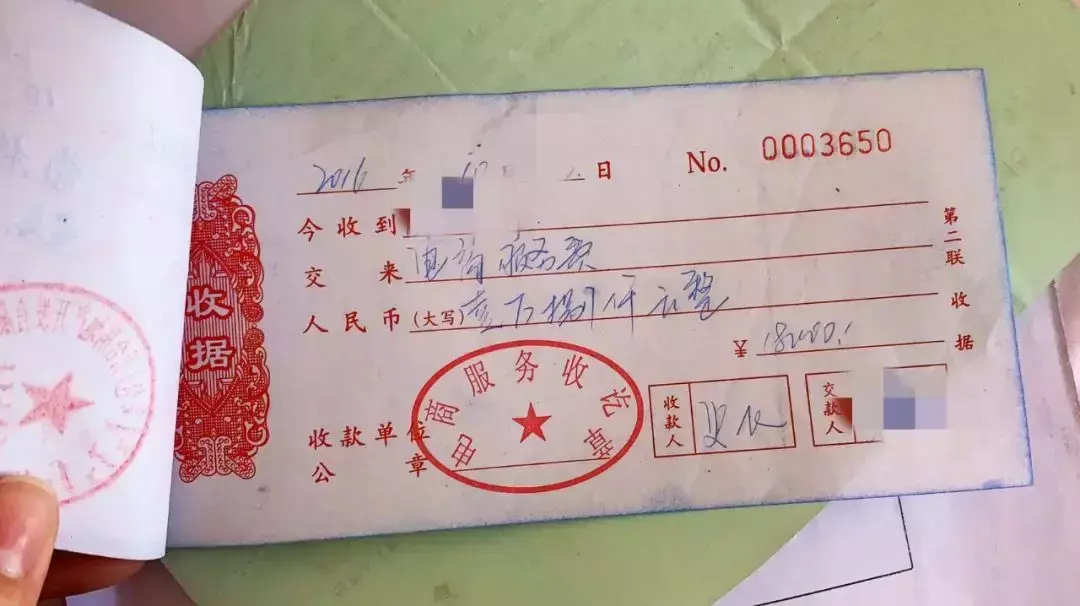 2016年 日 No. 0003650
今收到
交来 电商服务费
人民币(大写) 壹万捌仟元整
¥ 18000.
第二联 收据
收据
收款单位
公章
电商服务收讫章
收款人
交款人